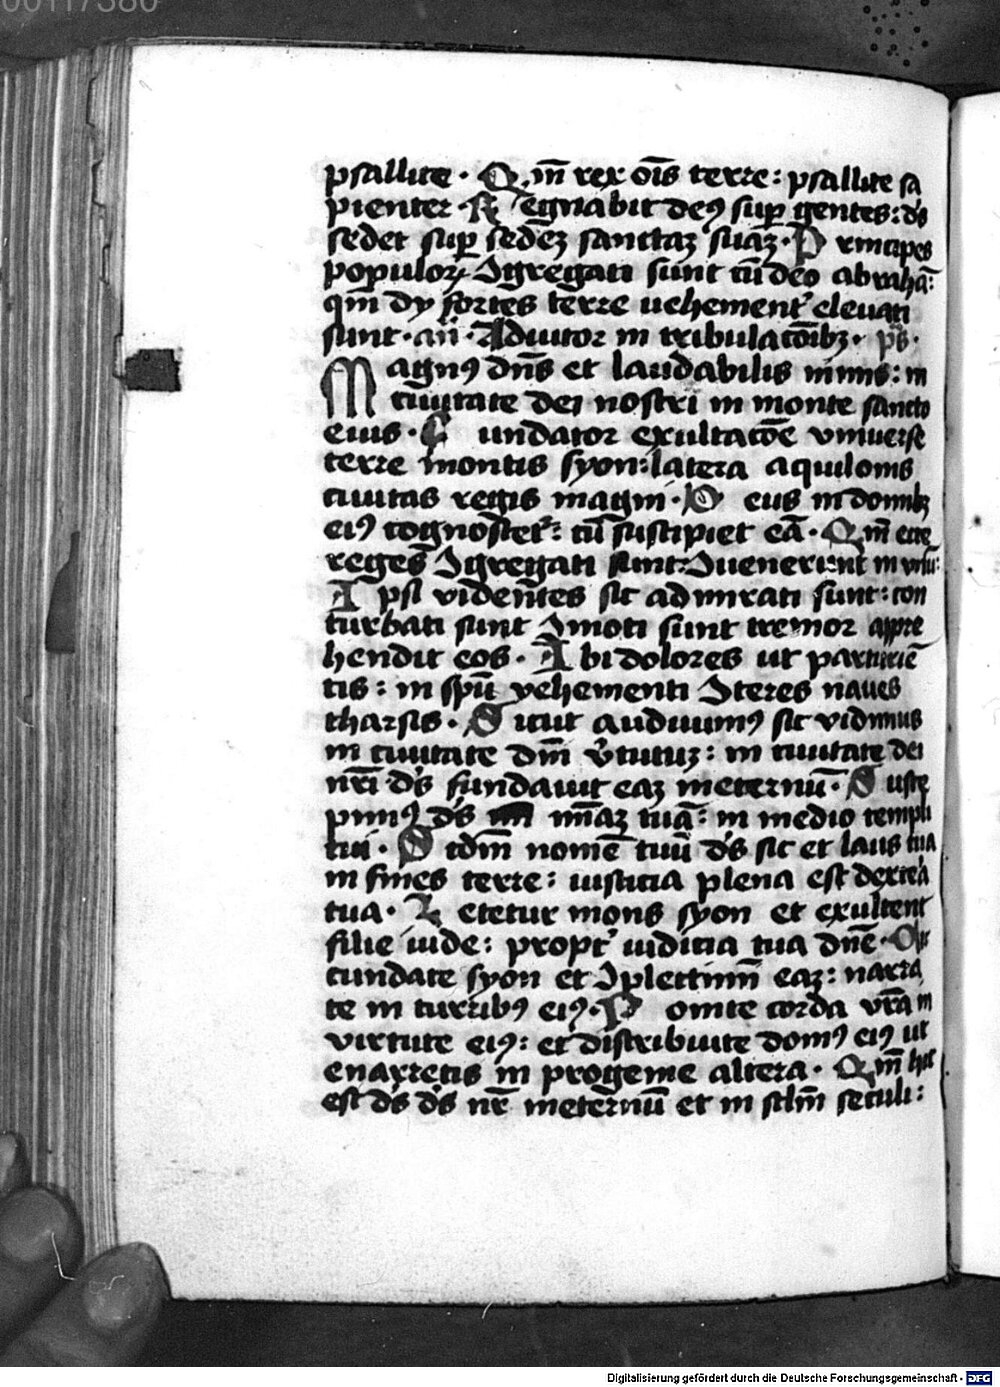 00117380
psallite · Qm̄ rex oīs terre : psallite sa
pienter · Regnabit deꝰ suꝑ gentes : ds̄
sedet suꝑ sedeʒ sanctaʒ suaʒ · Principes
populoꝝ ꝯgregati sunt cū deo abrahā :
qm̄ dij fortes terre uehementʼ eleuati
sunt · añ · Adiutor in tribulacōibʒ · ps̄ ·
Magnꝰ dn̄s et laudabilis nimis : in
ciuitate dei nostri in monte sancto
eius · Fundator exultacōe vniuerse
terre montis syon : latera aquilonis
ciuitas regis magni · Deus in domibʒ
eiꝰ cognoscetʼ : cū suscipiet eā · Qm̄ ecce
reges ꝯgregati sunt : ꝯuenerunt in vnū :
Ipsi videntes sic admirati sunt : con
turbati sunt ꝯmoti sunt tremor appre
hendit eos · Ibi dolores ut parturiē
tis : in spū vehementi ꝯteres naues
tharsis · Sicut audiuimꝰ sic vidimus
in ciuitate dn̄i v̓tutuʒ : in ciuitate dei
nr̄i ds̄ fundauit eaʒ ineternū · Susce
pimꝰ ds̄ mīaʒ tuā : in medio templi
tui · Scdm̄ nomē tuū ds̄ sic et laus tua
in fines terre : iusticia plena est dextera
tua · Letetur mons syon et exultent
filie iude : proptʼ iudicia tua dn̄e · Cir
cundate syon et ꝯplectimī eaʒ : narra
te in turribꝰ eiꝰ · Ponite corda vr̄a in
virtute eiꝰ : et distribuite domꝰ eiꝰ ut
enarretis in progenie altera · Qm̄ hic
est ds̄ ds̄ nr̄ ineternū et in sclm̄ seculi :
Digitalisierung gefördert durch die Deutsche Forschungsgemeinschaft · DFG